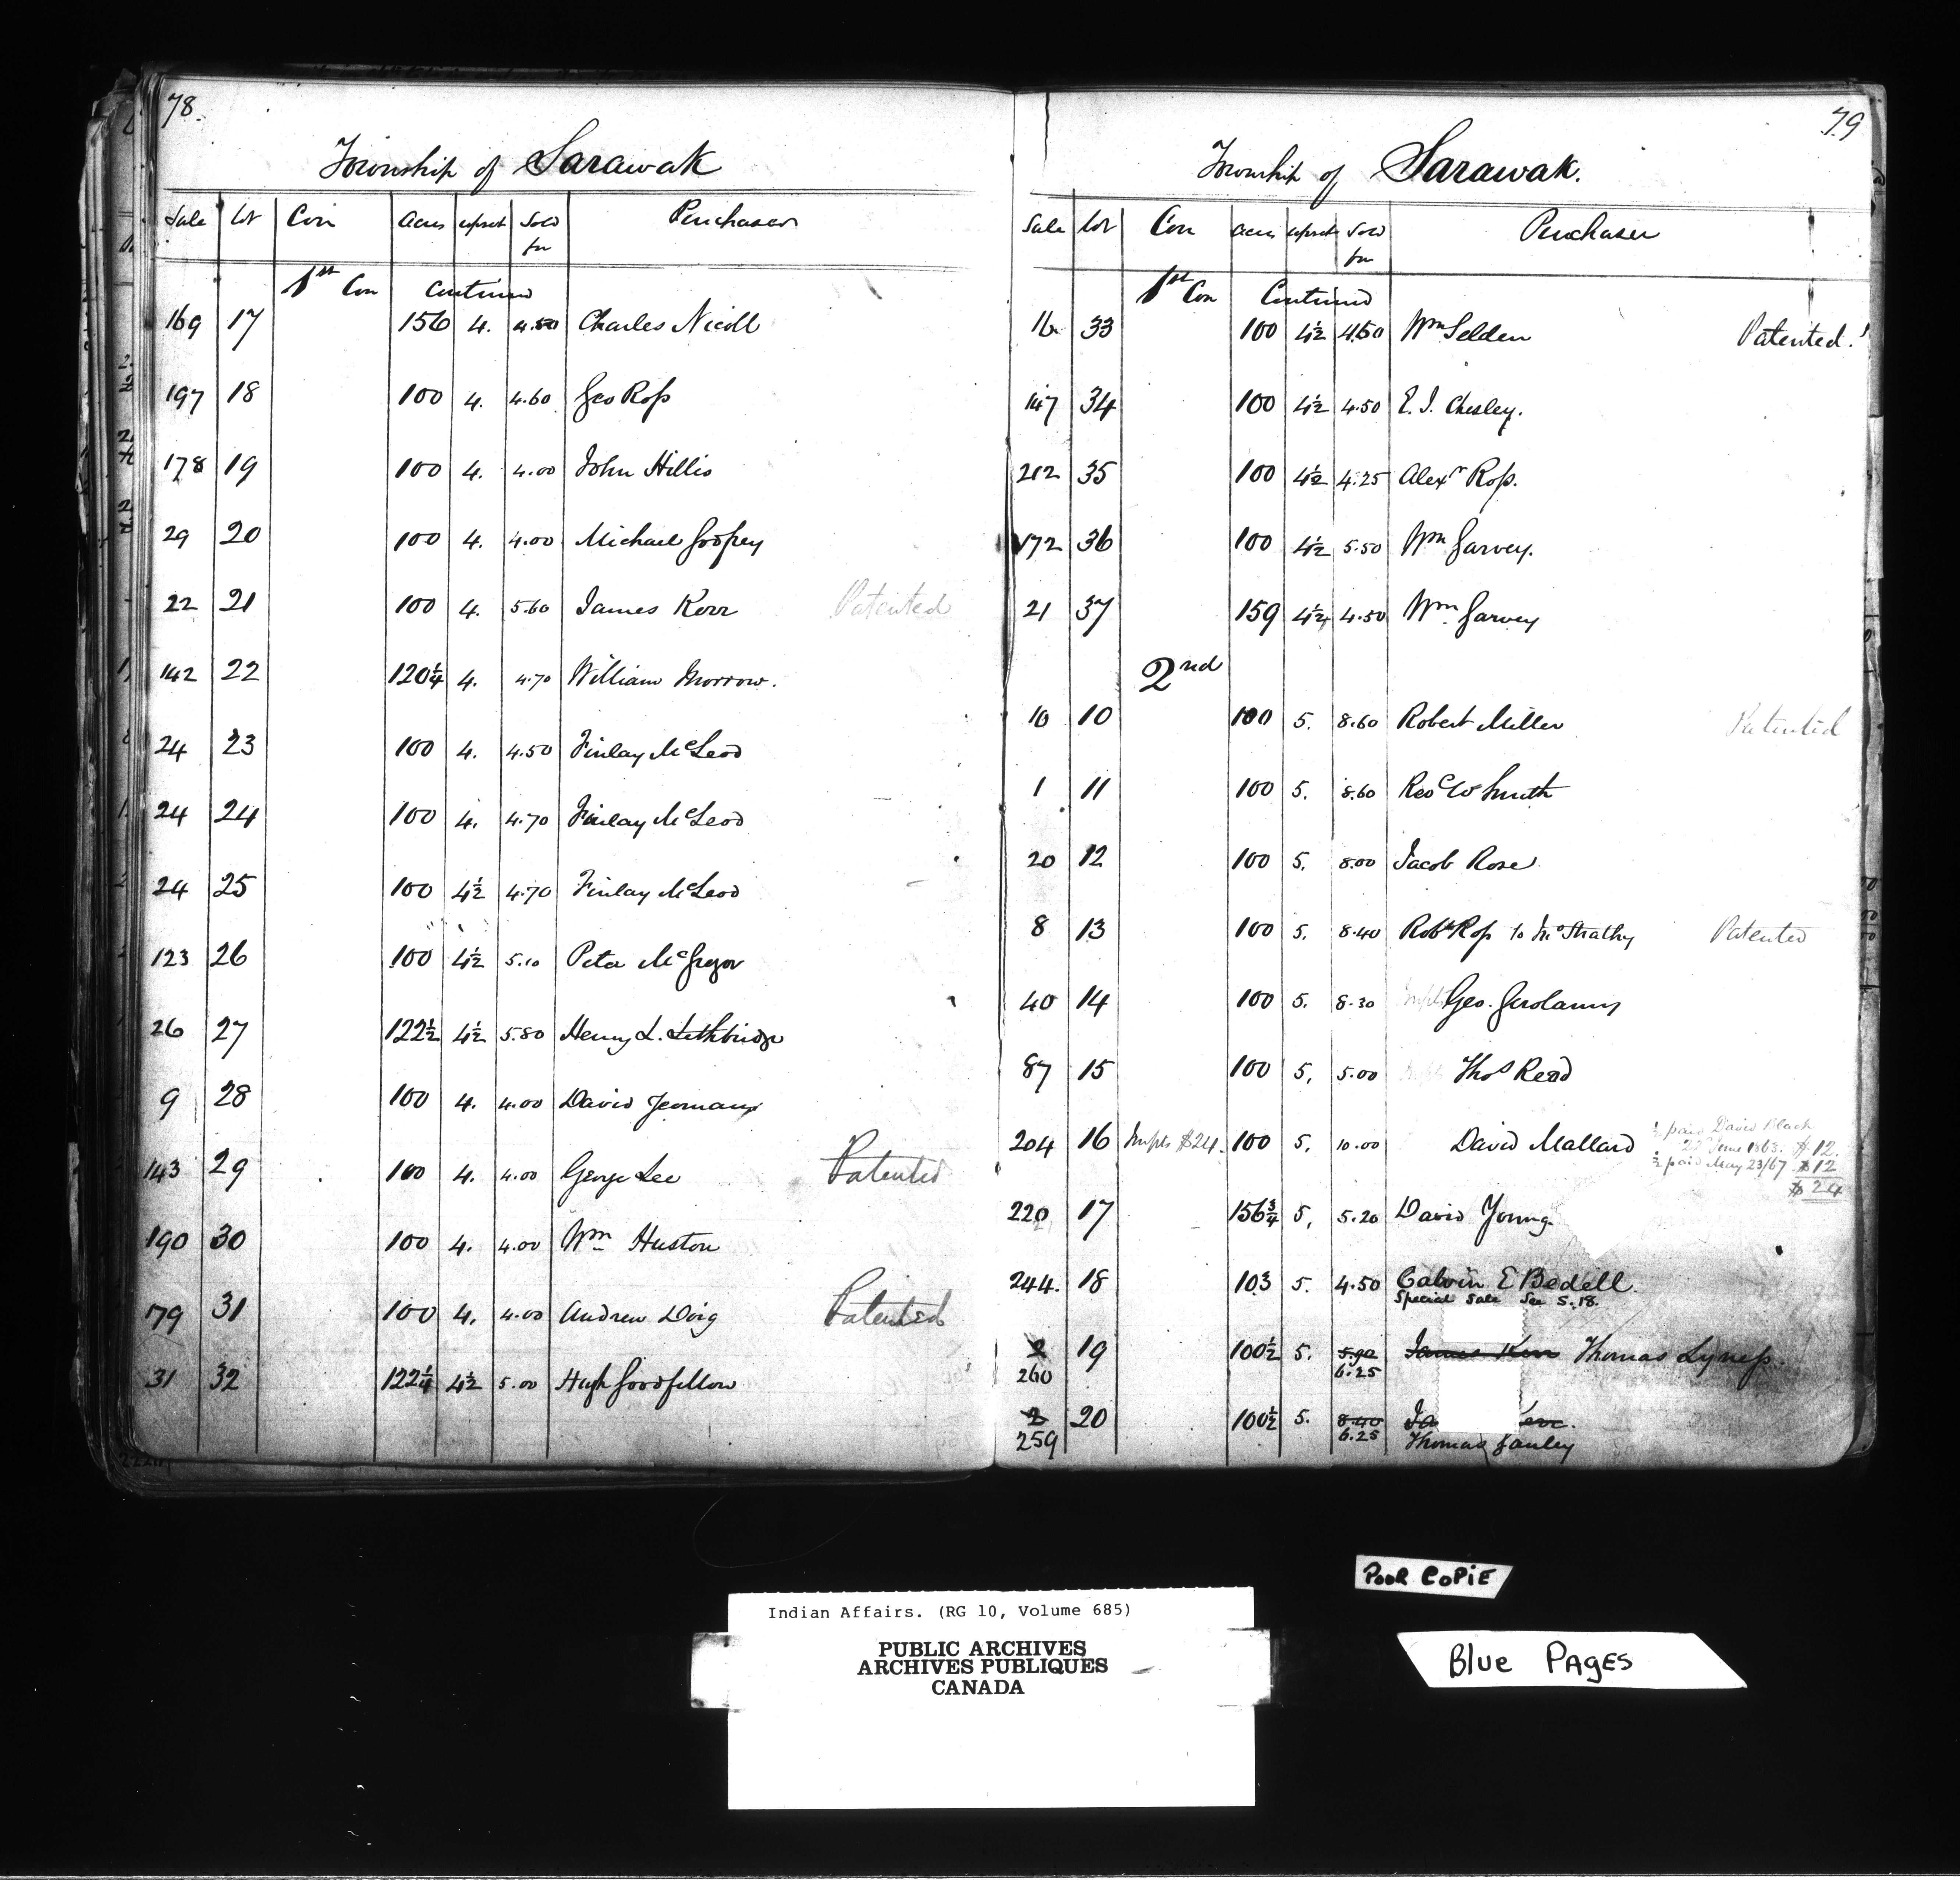 78.
Township of Sarawak
Sale Lot Con Acres upset Sold for Purchaser
1st Con Continued
169 17 156 4. 4.50 Charles Nicoll
197 18 100 4. 4.60 Geo Ross
178 19 100 4. 4.00 John Hillis
29 20 100 4. 4.00 Michael Godfrey
22 21 100 4. 5.60 James Kerr Patented
142 22 120¼ 4. 4.70 William Morrow.
24 23 100 4. 4.50 Finlay McLeod
24 24 100 4. 4.70 Finlay McLeod
24 25 100 4½ 4.70 Finlay McLeod
123 26 100 4½ 5.10 Peter McGregor
26 27 122½ 4½ 5.80 Henry L. Lethbridge
9 28 100 4. 4.00 David Yeomans
143 29 100 4. 4.00 George Lee Patented
190 30 100 4. 4.00 Wm Huston
179 31 100 4. 4.00 Andrew Doig Patented
31 32 122¼ 4½ 5.00 Hugh Goodfellow
79
Township of Sarawak.
Sale Lot Con Acres upset Sold for Purchaser
1st Con Continued
16 33 100 4½ 4.50 Wm Selden Patented.
147 34 100 4½ 4.50 E. J. Chesley.
212 35 100 4½ 4.25 Alexr Ross.
172 36 100 4½ 5.50 Wm Garvey.
21 37 159 4½ 4.50 Wm Garvey
2nd
10 10 100 5. 8.60 Robert Miller Patented
1 11 100 5. 8.60 Smith
20 12 100 5. 8.00 Jacob Rose
8 13 100 5. 8.40 Robt Ross to Strathy Patented
40 14 100 5. 8.30 Geo. Gerolamy
87 15 100 5, 5.00 Thos Read
204 16 Impts $24. 100 5, 10.00 David Mallard
½ paid David Black
22d June 1863. $12.
½ paid May 23/67 $12
$24
220 17 156¾ 5, 5.20 David Young
244. 18 103 5. 4.50 Calvin E Bedell
Special Sale See S. 18.
2 19 100½ 5. 5.90 James Kerr Thomas Lyness.
260 6.25
2 20 100½ 5. 8.40 Ja err.
259 6.25 Thomas
Poor Copie
Indian Affairs. (RG 10, Volume 685)
PUBLIC ARCHIVES
ARCHIVES PUBLIQUES
CANADA
Blue Pages